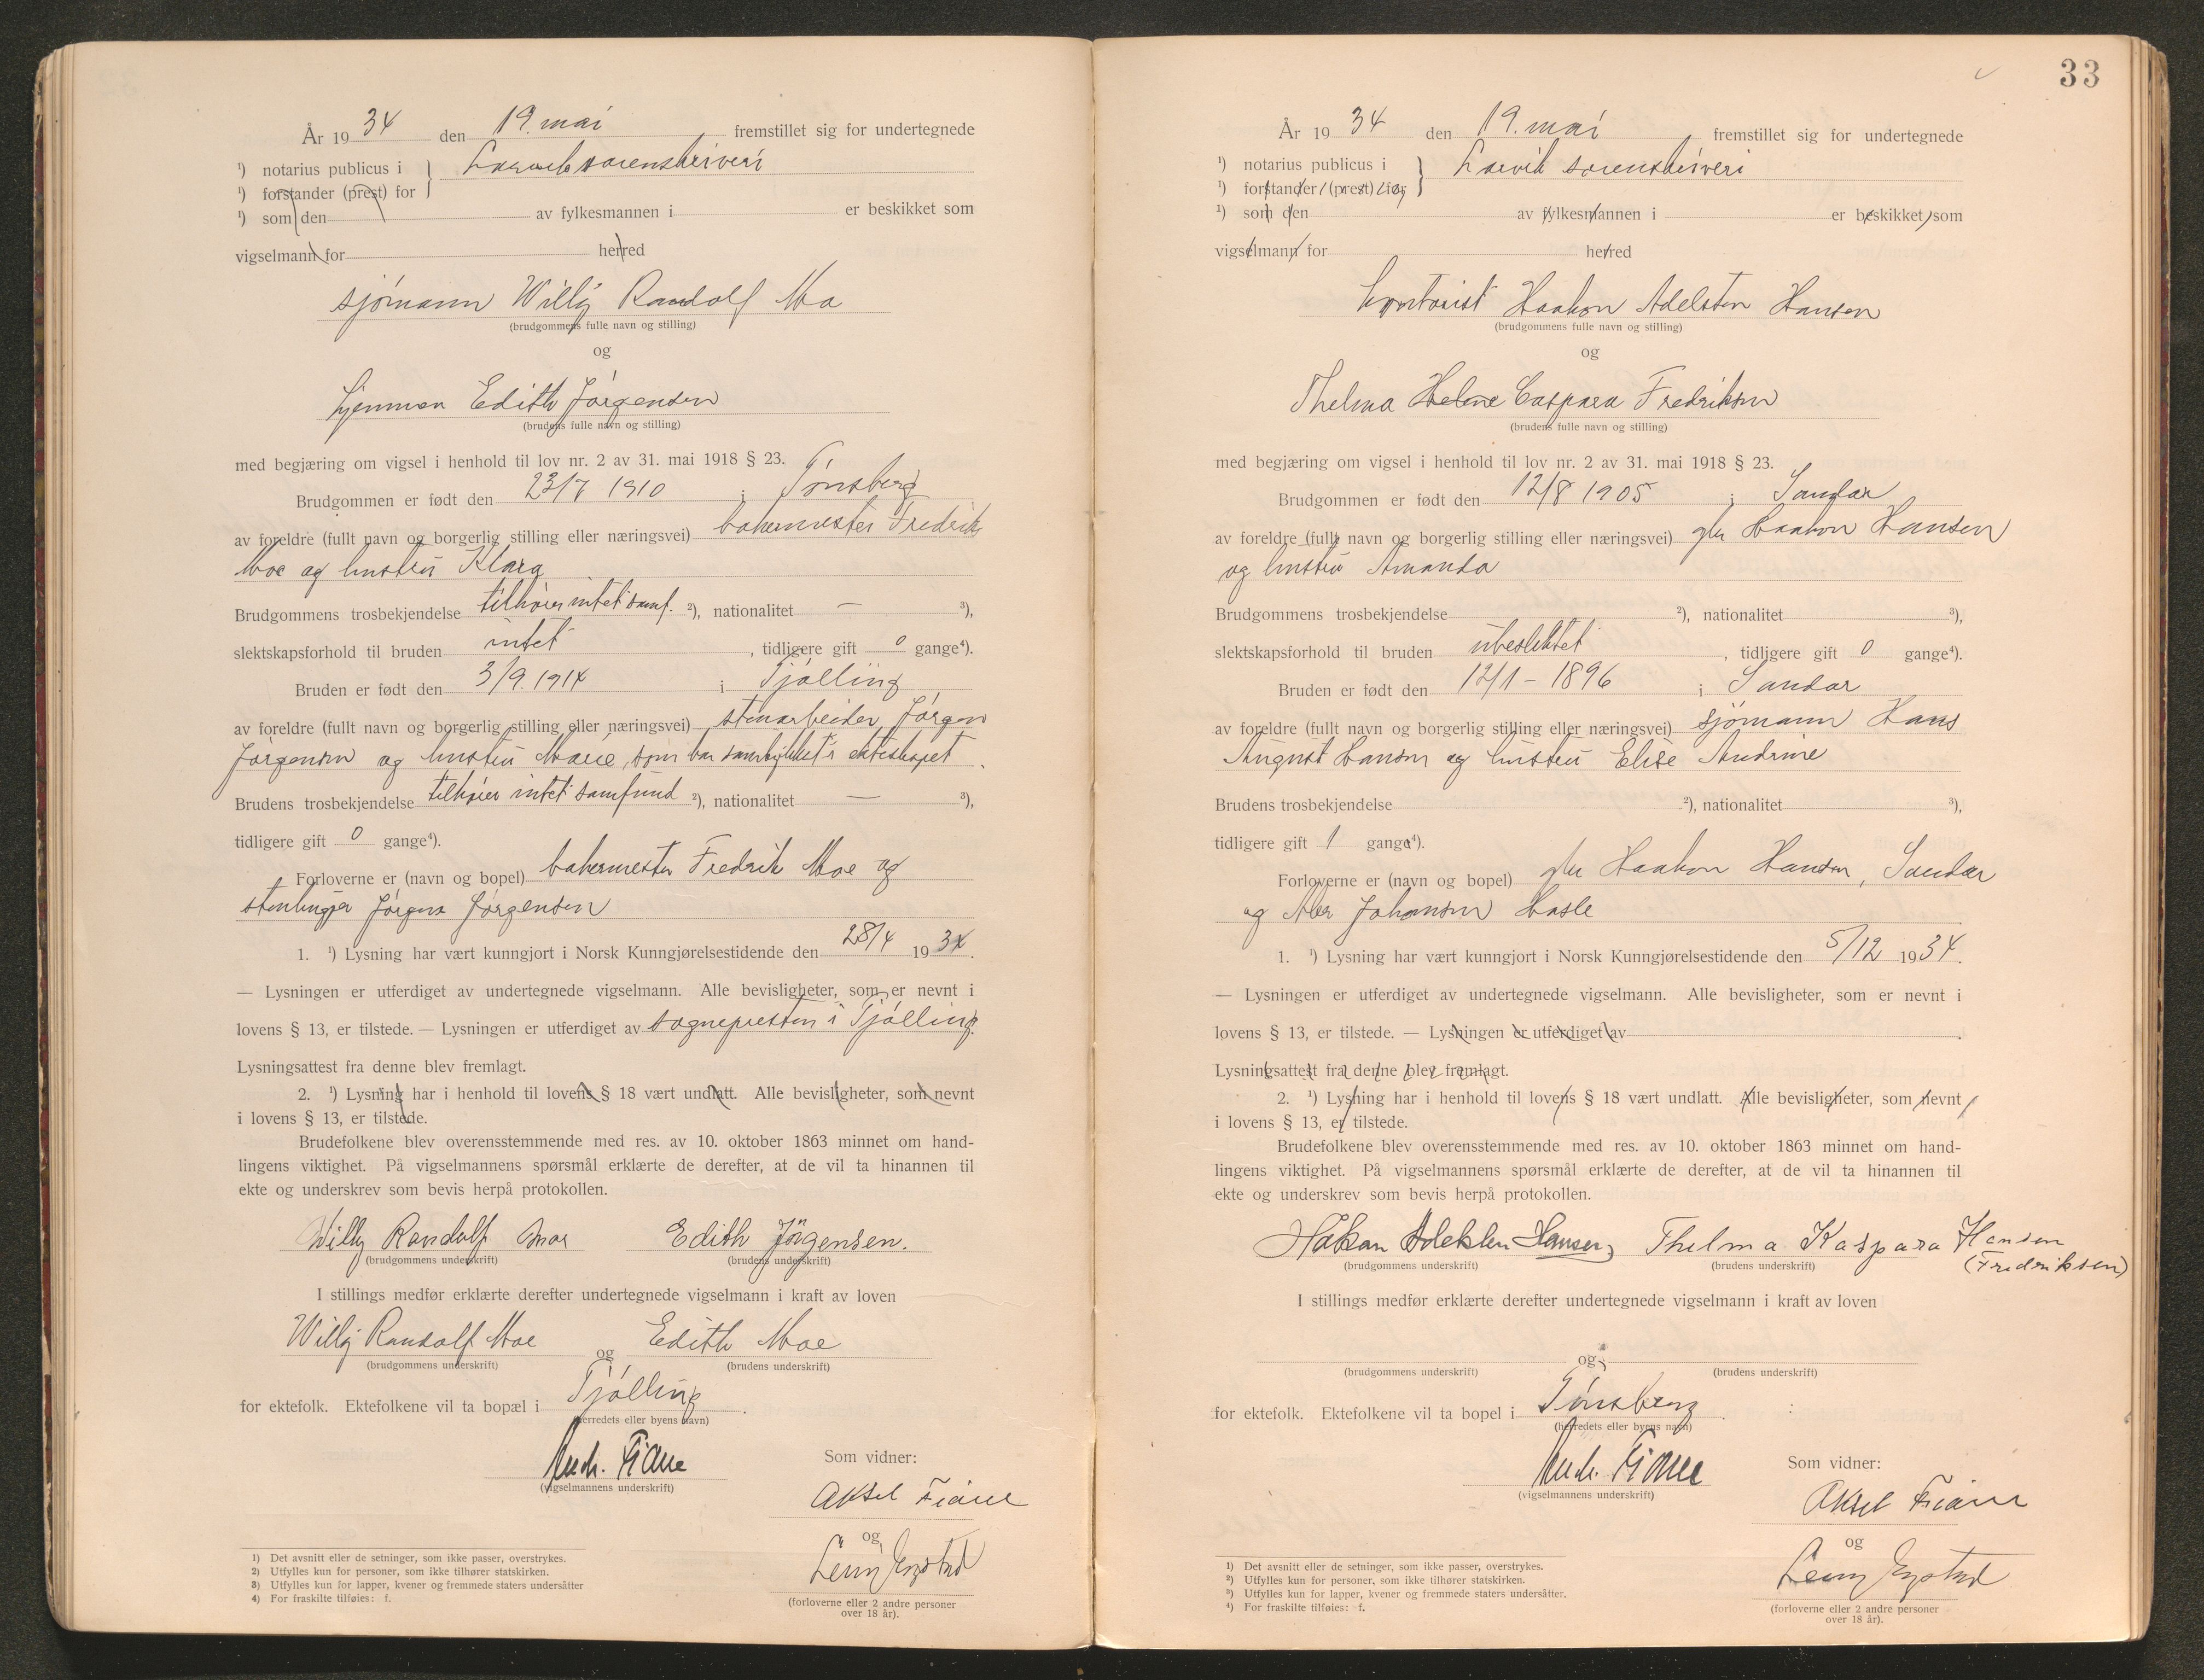 År 1934 den 19. mai fremstillet sig for undertegnede
¹) notarius publicus i } Larvik sorenskriveri
¹) forstander (prest) for
¹) som den av fylkesmannen i er beskikket som
vigselmann for herred
sjømann Willy Randolf Moe
(brudgommens fulle navn og stilling)
og
hjemmev Edith Jørgensen
(brudens fulle navn og stilling)
med begjæring om vigsel i henhold til lov nr. 2 av 31. mai 1918 § 23.
Brudgommen er født den 23/7 1910 i Tønsberg
av foreldre (fullt navn og borgerlig stilling eller næringsvei) bakermester Fredrik
Moe og hustru Klara
Brudgommens trosbekjendelse tilhører intet samf. ²), nationalitet — ³),
slektskapsforhold til bruden intet, tidligere gift 0 gange⁴).
Bruden er født den 3/9.1914 i Tjølling
av foreldre (fullt navn og borgerlig stilling eller næringsvei) stenarbeider Jørgen
Jørgensen og hustru Marie, som har samtykket i ekteskapet.
Brudens trosbekjendelse tilhører intet samfund ²), nationalitet — ³),
tidligere gift 0 gange⁴).
Forloverne er (navn og bopel) bakermester Fredrik Moe og
stenhugger Jørgen Jørgensen
1. ¹) Lysning har vært kunngjort i Norsk Kunngjørelsestidende den 28/4 1934.
— Lysningen er utferdiget av undertegnede vigselmann. Alle bevisligheter, som er nevnt i
lovens § 13, er tilstede. — Lysningen er utferdiget av sognepresten i Tjølling.
Lysningsattest fra denne blev fremlagt.
2. ¹) Lysning har i henhold til lovens § 18 vært undlatt. Alle bevisligheter, som nevnt
i lovens § 13, er tilstede.
Brudefolkene blev overensstemmende med res. av 10. oktober 1863 minnet om hand-
lingens viktighet. På vigselmannens spørsmål erklærte de derefter, at de vil ta hinannen til
ekte og underskrev som bevis herpå protokollen.
Willy Randolf Moe Edith Jørgensen.
(brudgommens underskrift) (brudens underskrift)
I stillings medfør erklærte derefter undertegnede vigselmann i kraft av loven
Willy Randolf Moe og Edith Moe
(brudgommens underskrift) (brudens underskrift)
for ektefolk. Ektefolkene vil ta bopæl i Tjølling.
(herredets eller byens navn)
Andr. Fiane
(vigselmannens underskrift)
Som vidner:
Aksel Fiane
og
(forloverne eller 2 andre personer
over 18 år).
1) Det avsnitt eller de setninger, som ikke passer, overstrykes.
2) Utfylles kun for personer, som ikke tilhører statskirken.
3) Utfylles kun for lapper, kvener og fremmede staters undersåtter
4) For fraskilte tilføies: f.
33
År 1934 den 19. mai, fremstillet sig for undertegnede
¹) notarius publicus i } Larvik sorenskriveri
¹) forstander (prest) for
¹) som den av fylkesmannen i er beskikket som
vigselmann for herred
kontorist Haakon Adelsten Hansen
(brudgommens fulle navn og stilling)
og
Thelma Helene Caspara Fredriksen
(brudens fulle navn og stilling)
med begjæring om vigsel i henhold til lov nr. 2 av 31. mai 1918 § 23.
Brudgommen er født den 12/8 1905 i Sandar
av foreldre (fullt navn og borgerlig stilling eller næringsvei) Haakon Hansen
og hustru Amanda
Brudgommens trosbekjendelse ²), nationalitet ³),
slektskapsforhold til bruden ubeslektet, tidligere gift 0 gange⁴).
Bruden er født den 12/1 - 1896 i Sandar
av foreldre (fullt navn og borgerlig stilling eller næringsvei) sjømann Hans
August Hansen og hustru Elise Andrine
Brudens trosbekjendelse ²), nationalitet ³),
tidligere gift 1 gange⁴).
Forloverne er (navn og bopel) Haakon Hansen, Sandar
og Johansen Hasle
1. ¹) Lysning har vært kunngjort i Norsk Kunngjørelsestidende den 5/12 1934.
— Lysningen er utferdiget av undertegnede vigselmann. Alle bevisligheter, som er nevnt i
lovens § 13, er tilstede. — Lysningen er utferdiget av
Lysningsattest fra denne blev fremlagt.
2. ¹) Lysning har i henhold til lovens § 18 vært undlatt. Alle bevisligheter, som nevnt
i lovens § 13, er tilstede.
Brudefolkene blev overensstemmende med res. av 10. oktober 1863 minnet om hand-
lingens viktighet. På vigselmannens spørsmål erklærte de derefter, at de vil ta hinannen til
ekte og underskrev som bevis herpå protokollen.
Håkon Adelsten Hansen, Thelma Kaspara Hansen
(Fredriksen)
(brudgommens underskrift) (brudens underskrift)
I stillings medfør erklærte derefter undertegnede vigselmann i kraft av loven
og
(brudgommens underskrift) (brudens underskrift)
for ektefolk. Ektefolkene vil ta bopel i Tønsberg.
(herredets eller byens navn)
Andr. Fiane
(vigselmannens underskrift)
Som vidner:
Aksel Fiane
og
(forloverne eller 2 andre personer
over 18 år).
¹) Det avsnitt eller de setninger, som ikke passer, overstrykes.
²) Utfylles kun for personer, som ikke tilhører statskirken.
³) Utfylles kun for lapper, kvener og fremmede staters undersåtter.
⁴) For fraskilte tilføies: f.